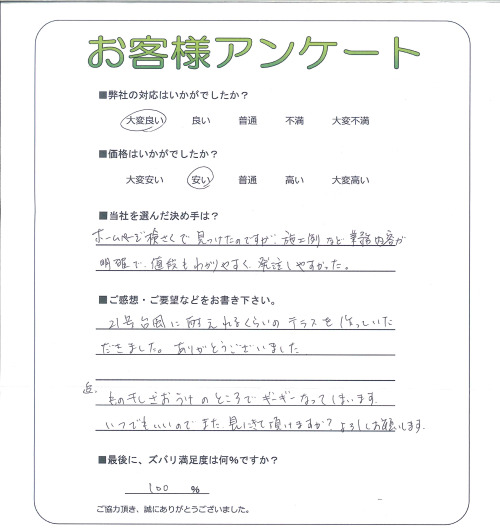 お客様アンケート
■弊社の対応はいかがでしたか？
大変良い 良い 普通 不満 大変不満
■価格はいかがでしたか？
大変安い 安い 普通 高い 大変高い
■当社を選んだ決め手は？
ホームページ検さくで見つけたのですが、施工例など業務内容が
明確で、値段もわかりやすく、発注しやすかった。
■ご感想・ご要望などをお書き下さい。
21号台風に耐えれるくらいのテラスを
だきました。ありがとうございました
追.
ものほしざおうけのところでギーギーなって
いつでもいいのでまた見にきて頂けますか？よろしくお願いします.
■最後に、ズバリ満足度は何％ですか？
100 ％
ご協力頂き、誠にありがとうございました。